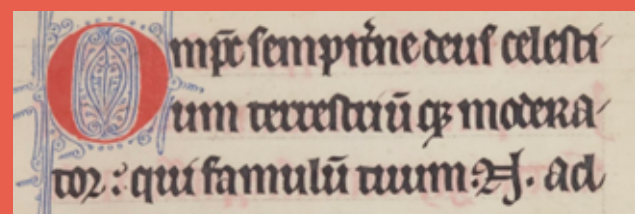 Omp̄c sempit̄ne deus celesti
um terrestriū qꝫ modera
tor: qui famulū tuum .N. ad